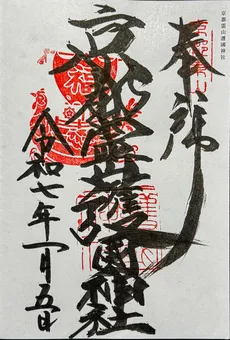 京都霊山護國神社
奉拝
京都霊山護國神社
令和七年一月五日